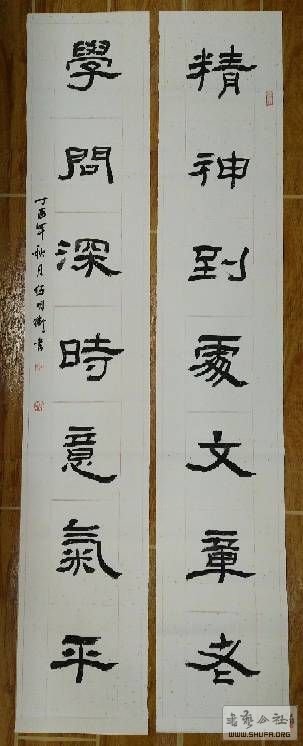 精神到處文章老
學問深時意氣平
丁酉年秋月伍明衡書
书艺公社
WWW.SHUFA.ORG